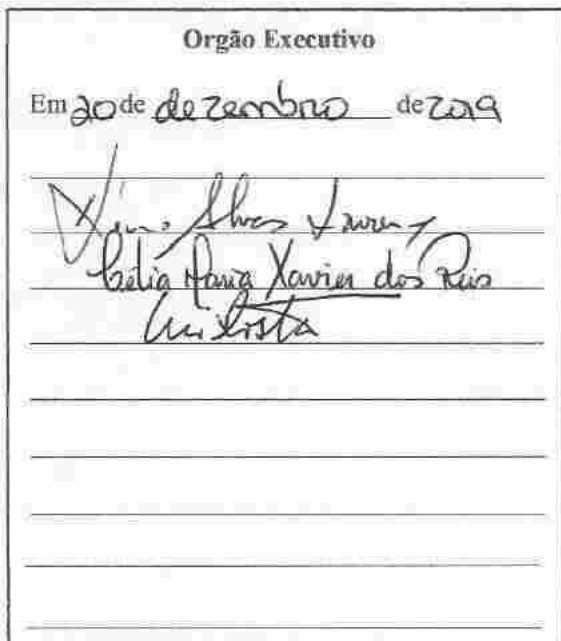 Orgão Executivo
Em 20 de dezembro de 2019
Alves
Célia Maria Xavier dos Reis
Costa